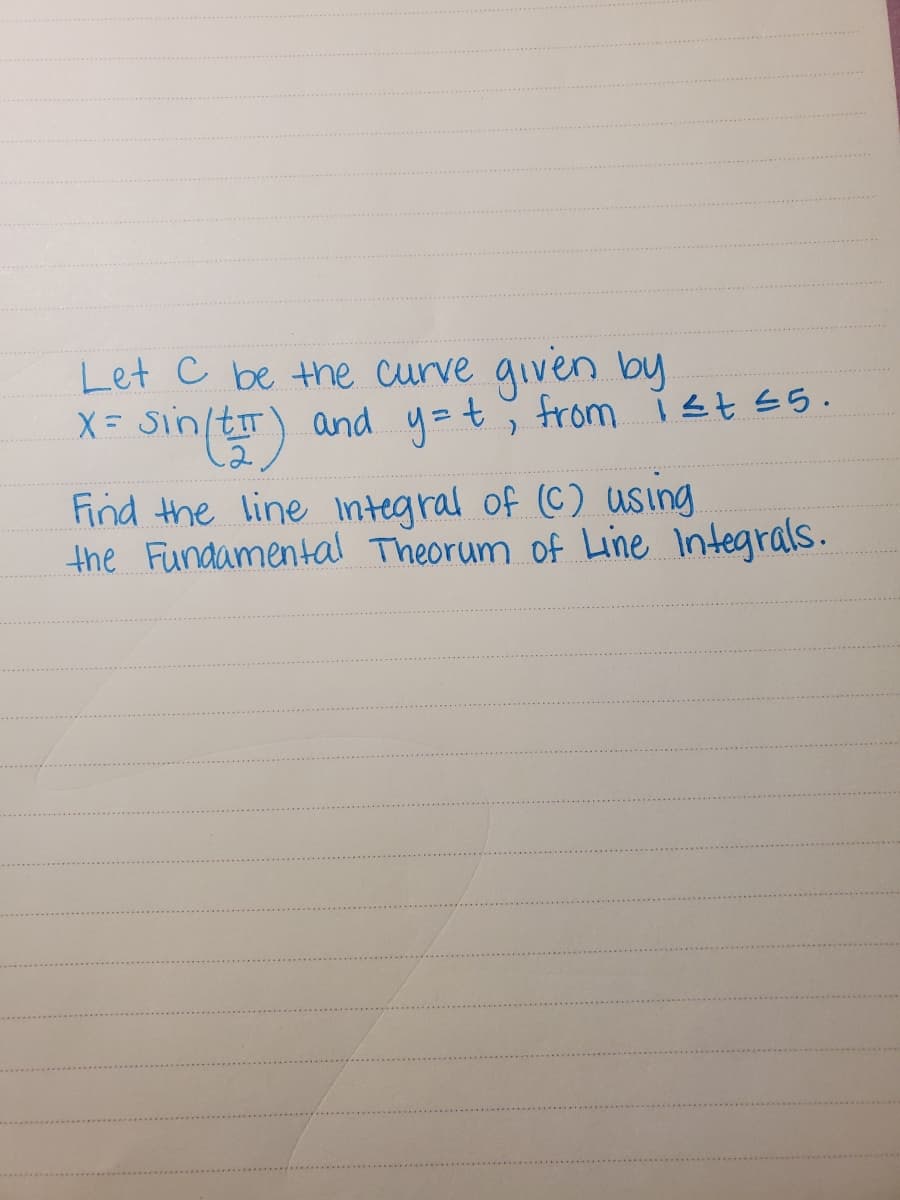 Let C be the curve given by
x = sin(tπ/2) and y = t, from 1 ≤ t ≤ 5.
Find the line integral of (C) using
the Fundamental Theorum of Line Integrals.